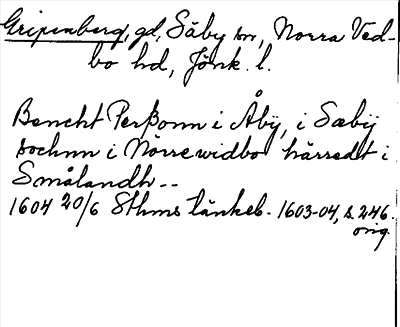 Gripenberg, gd, Säby sn, Norra Ved-
bo hd, Jönk. l.
Bencht Perßonn i Åbÿ, i Sæbÿ
sochnn i Norrewidbo härredt i
Smålandh--
1604 20/6 Sthms tänkeb. 1603-04, s. 246.
orig.